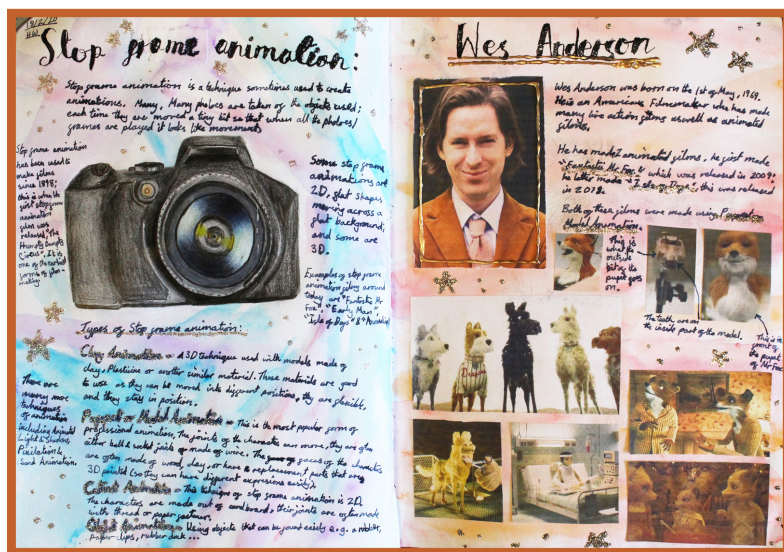 13/2/20
HW
Stop frame animation:
Stop frame animation is a technique sometimes used to create
animations. Many, Many photos are taken of the objects used;
each time they are moved a tiny bit so that when all the photos/
frames are played it looks like movement.
Stop frame animation
has been used to
make films
since 1898;
this is when the
first stop frame
animation
film was
released, "The
Humpty Dumpty
Circus". It is
one of the earliest
forms of film-
making.
Some stop frame
animations are
2D, flat shapes
moving across a
flat background;
and some are
3D.
Examples of stop frame
animation films around
today are "Fantastic Mr
Fox", "Early Man",
"Isle of Dogs" &
Types of Stop frame animation:
Clay Animation - A 3D technique used with models made of
clay, Plasticine or another similar material. These materials are good
to use as they can be moved into different positions, they are flexible,
and they stay in position.
There are
many more
techniques
of animation
including Animated
Light & Shadow
Pixilation &
Sand Animation.
Puppet or Model Animation - This is the most popular form of
professional animation. The joints of the character can move, they are often
either ball & socket joints or made of wire. The faces of the characters
are often made of wood, clay, or have a replacement parts that are
3D printed (so they can have different expressions easily).
Cutout Animation - This technique of stop frame animation is 2D.
The characters are made out of cardboard, their joints are often made
with thread or paper fastener.
Object Animation - Using objects that can be found easily e.g. a rubber,
paper clips, rubber duck...
Wes Anderson
Wes Anderson was born on the 1st of May, 1969.
He is an American Filmmaker who has made
many live action films aswell as animated
films.
He has made 2 animated films, he first made
"Fantastic Mr Fox" which was released in 2009;
he later made "Isle of Dogs", this was released
in 2018.
Both of these films were made using Puppet or
Model Animation.
This is
what the
outside
bit of the
puppet goes
on.
The teeth are on
the inside part of the model.
This is the
front of
the puppet
of Mr Fox